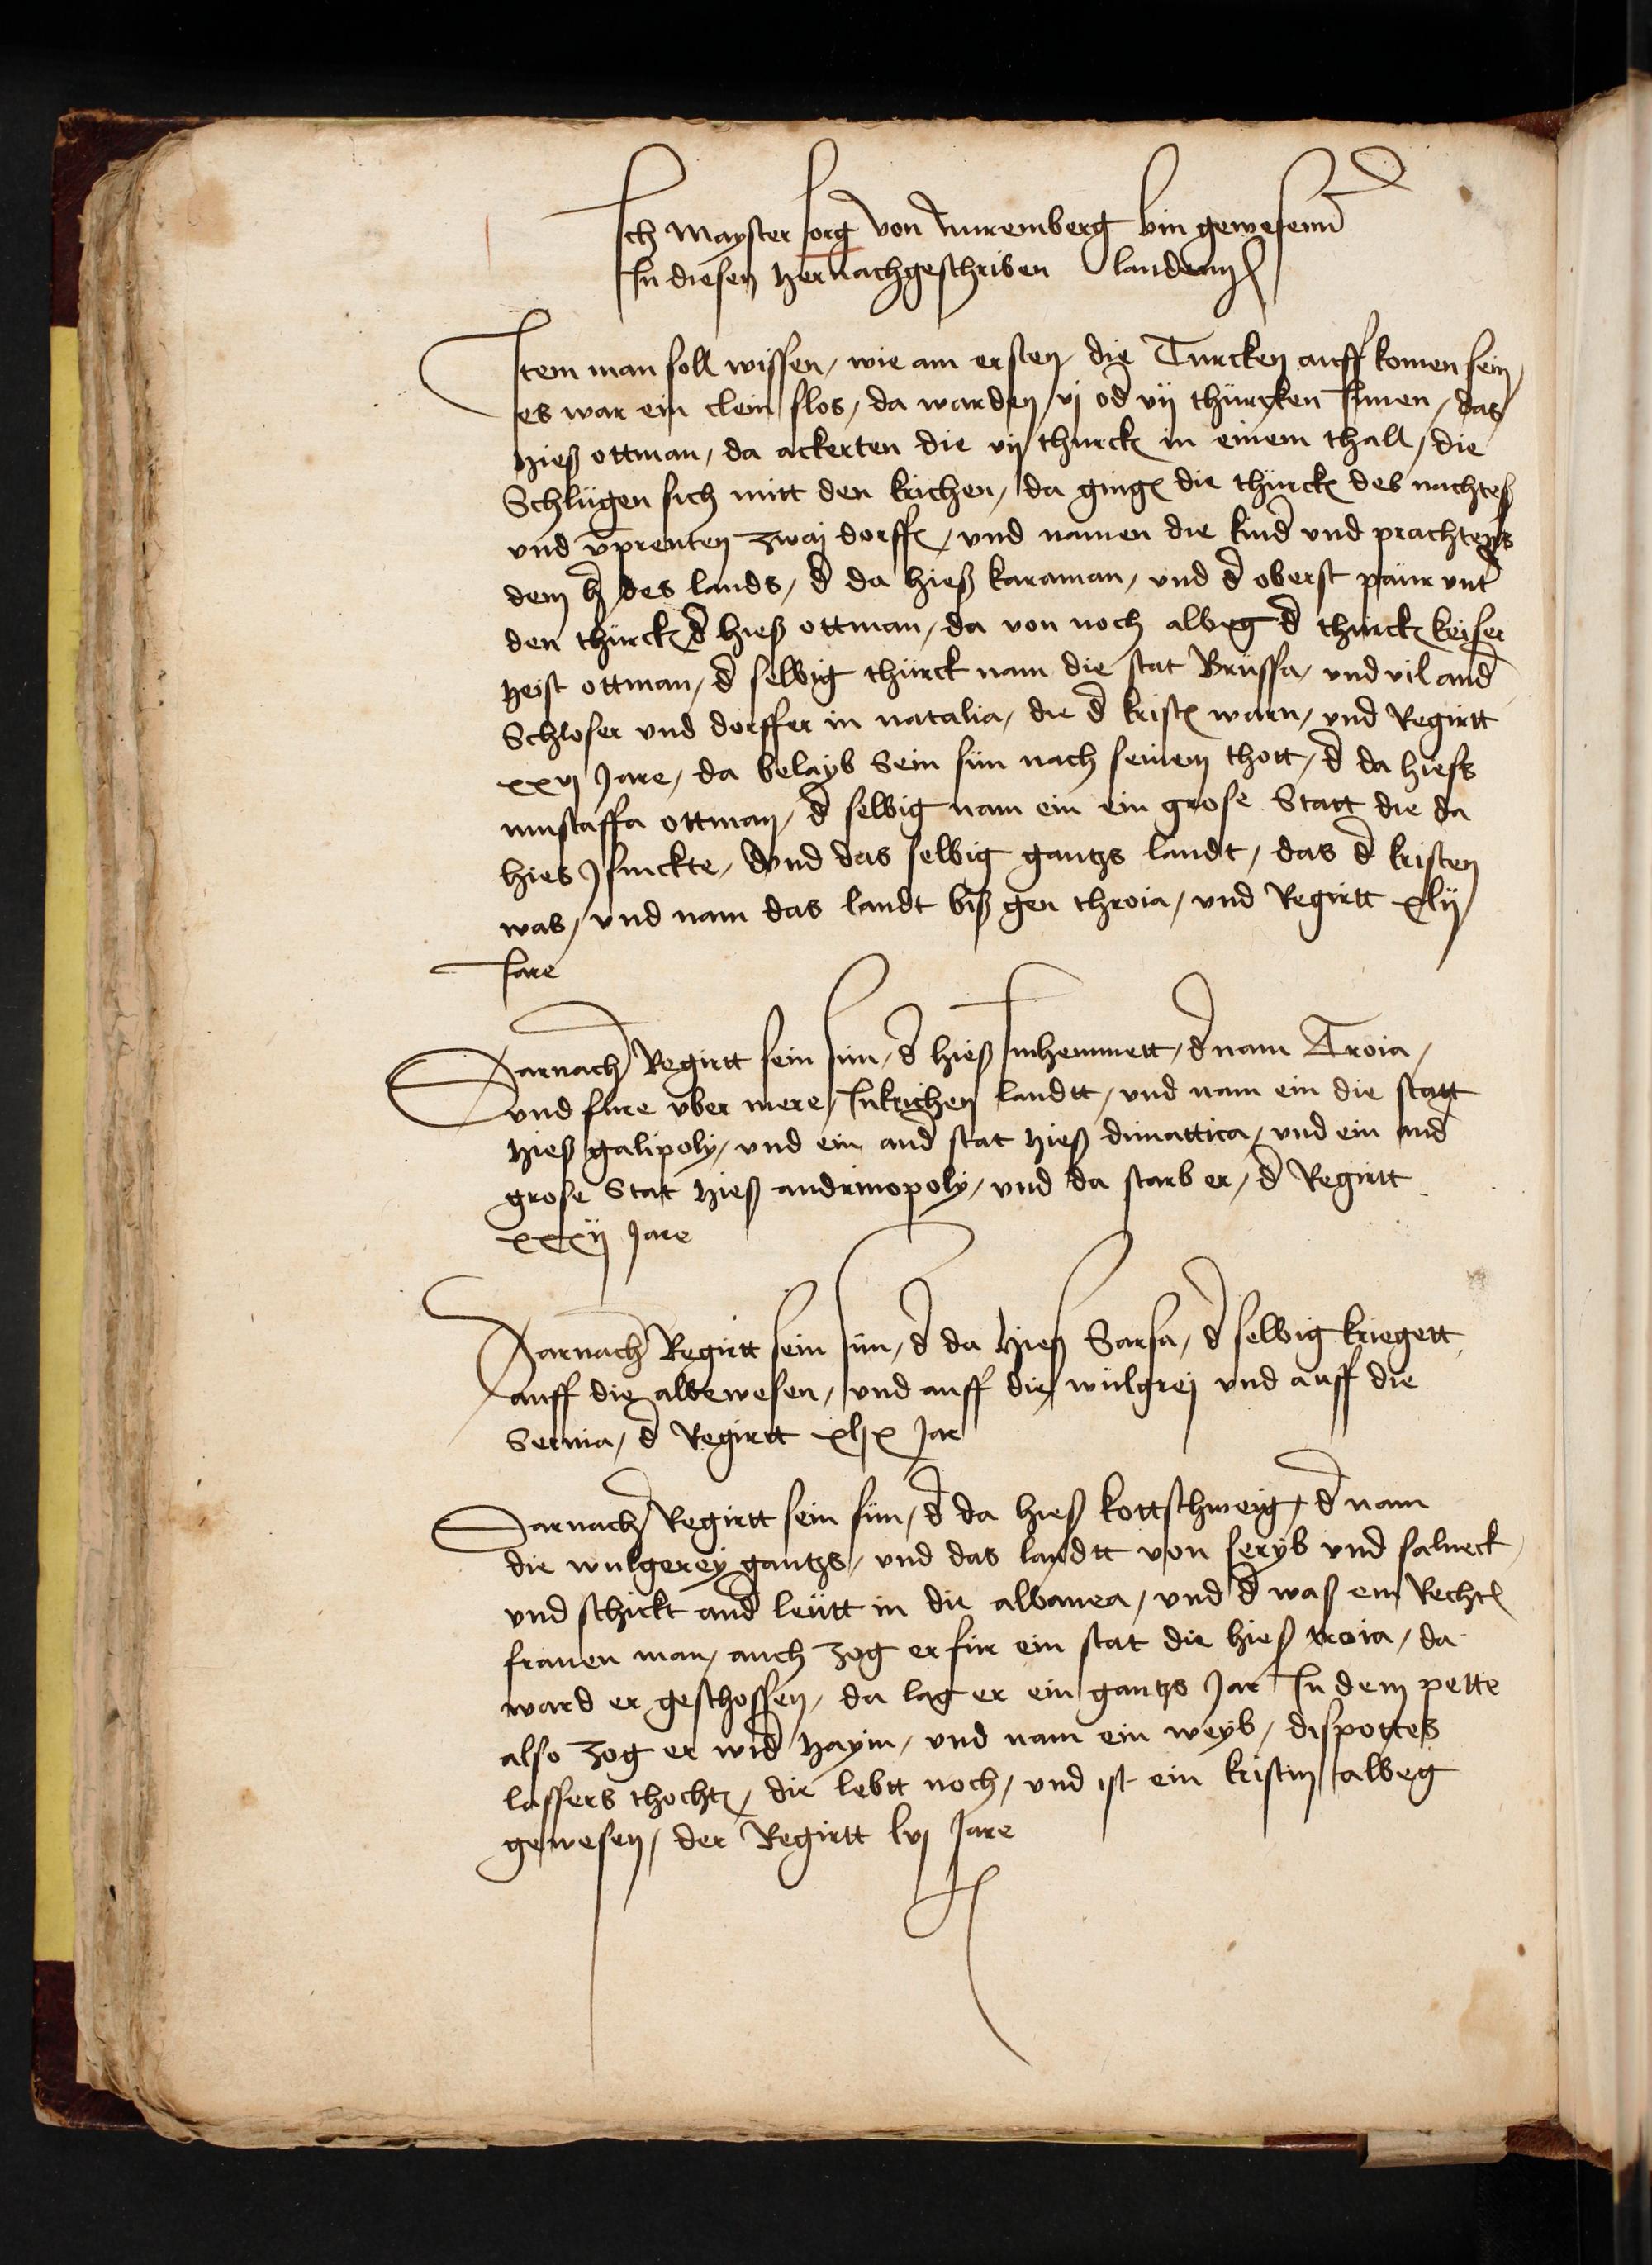 Ich Mayster Jorg von Nuremberg bin gewesenn
In diesen hernachgeschriben landenn
Item man soll wissen / wie am ersten die Turcken auff komen sein /
es war ein clein slos / da warden vj od vij thürcken Innen / das
hieß ottman / da ackerten die vij thurck in einem thall / die
Schlugen sich mitt den krichen / da ging die thürck des nachtes
vnd vprenten zwaj dorff / vnd namen die kind vnd prachtens
dem h des lands / d da hieß karaman / vnd d oberst paur vnt
den thürck d hieß ottman / da von noch albeg d thurck keiser
heist ottman / d selbig thürck nam die stat Brüssa / vnd vil and
Schloser vnd dorffer in natalia / die d krist warn / vnd Regirtt
xxvj Jare / da belayb Sein sün nach seinem thott / d da hiess
mustaffa ottman / d selbig nam ein ein grose Statt die da
hies Jsinckte / vnd das selbig gantzs landt / das d kristen
was / vnd nam das landt biß gen throia / vnd Regirtt xlij
Jare
Darnach Regirtt sein sün / d hieß mhemmett / d nam Troia /
vnd fure vber mere / In krichen landtt / vnd nam ein die statt
hieß galipoly / vnd ein and stat hieß dimattica / vnd ein and
grose Stat hieß andrinopoly / vnd da starb er / d Regirtt
xxxij Jare
Darnach Regirtt sein sün / d da hieß Sarsa / d selbig kriegett
auff die albewesen / vnd auff die wulgrej vnd auff die
Seruia / d Regirtt xljx Jar
Darnach Regirtt sein sün / d da hieß kottschweig / d nam
die wulgerey gantzs / vnd das landtt von seryb vnd salneck
vnd schickt and leütt in die albanea / vnd d waß ein Recht
frauen man / auch zog er für ein stat die hieß troia / da
ward er geschossen / da lag er ein gantzs Jar In dem pette
also zog er wid haym / vnd nam ein weyb / dispottes
lassers thocht / die lebtt noch / vnd ist ein kristin albeg
gewesen / der Regirtt lvj Jare